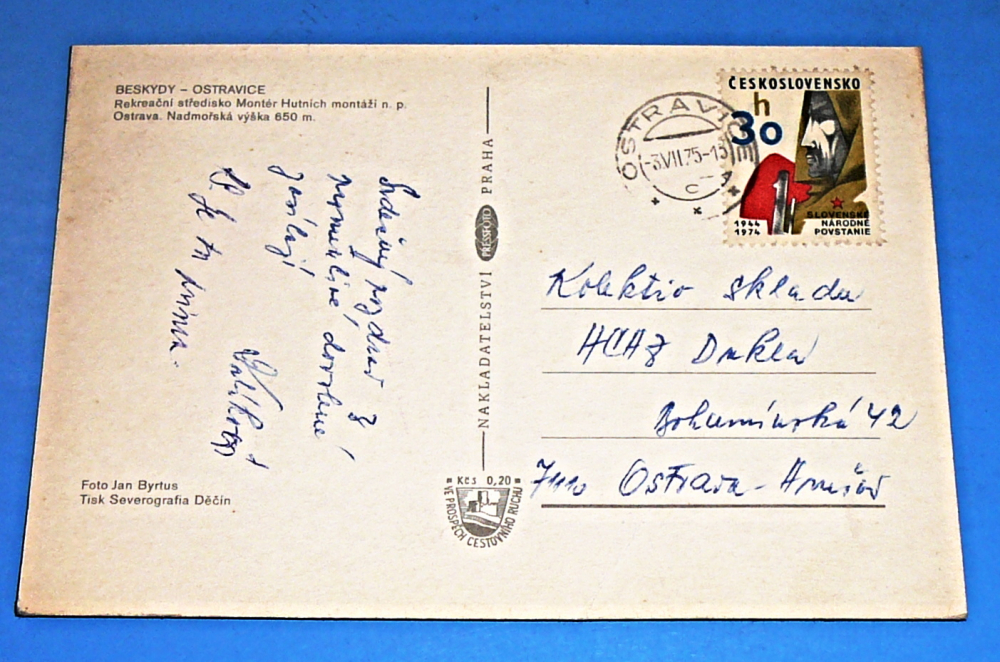 BESKYDY – OSTRAVICE
Rekreační středisko Montér Hutních montáží n. p.
Ostrava. Nadmořská výška 650 m.
Srdečný pozdrav z
dovolené
posílají
Foto Jan Byrtus
Tisk Severografia Děčín
NAKLADATELSTVÍ PRESSFOTO PRAHA
Kčs 0,20
VE PROSPĚCH CESTOVNÍHO RUCHU
OSTRAVICE
-3.VII.75-13
C A
ČESKOSLOVENSKO
30 h
1944
1974
SLOVENSKÉ
NÁRODNÉ
POVSTANIE
Kolektiv skladu
Dukla
Bohumínská 42
Ostrava-Hrušov